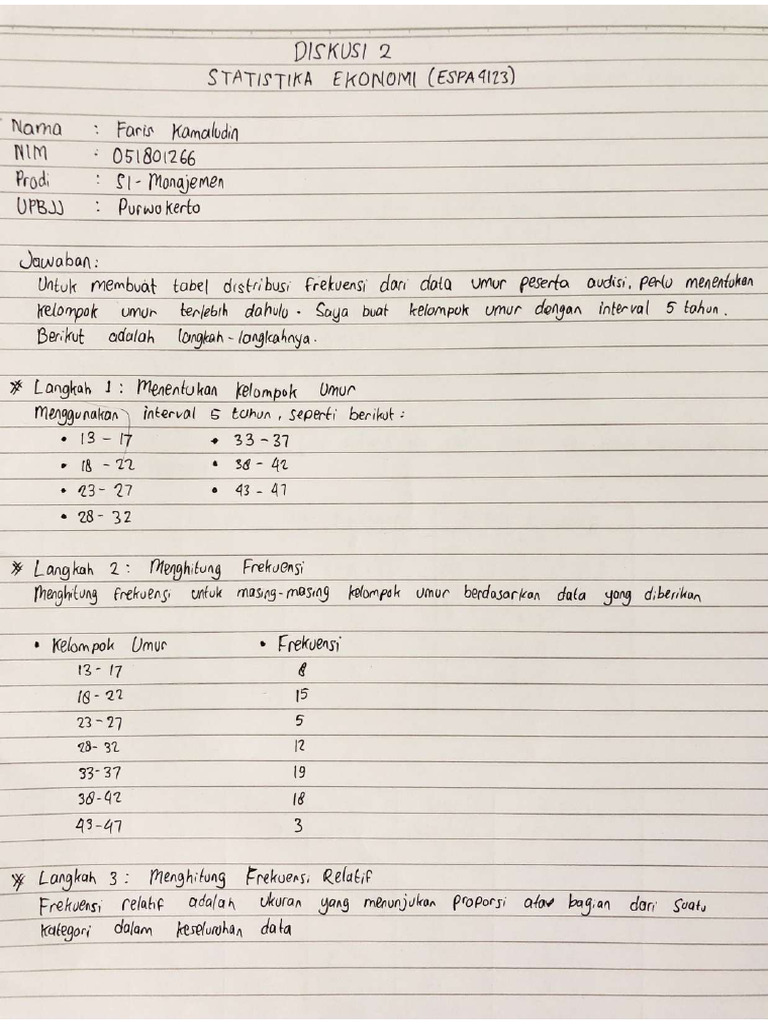 DISKUSI 2
STATISTIKA EKONOMI (ESPA4123)
Nama : Faris Kamaludin
NIM : 051801266
Prodi : S1 - Manajemen
UPBJJ : Purwokerto
Jawaban:
Untuk membuat tabel distribusi frekuensi dari data umur peserta audisi, perlu menentukan
kelompok umur terlebih dahulu. Saya buat kelompok umur dengan interval 5 tahun.
Berikut adalah langkah-langkahnya.
* Langkah 1: Menentukan Kelompok Umur
Menggunakan interval 5 tahun, seperti berikut:
• 13 - 17 • 33 - 37
• 18 - 22 • 38 - 42
• 23 - 27 • 43 - 47
• 28 - 32
* Langkah 2: Menghitung Frekuensi
Menghitung frekuensi untuk masing-masing kelompok umur berdasarkan data yang diberikan
• Kelompok Umur • Frekuensi
13 - 17 8
18 - 22 15
23 - 27 5
28 - 32 12
33 - 37 19
38 - 42 18
43 - 47 3
* Langkah 3: Menghitung Frekuensi Relatif
Frekuensi relatif adalah ukuran yang menunjukan proporsi atau bagian dari suatu
kategori dalam keseluruhan data